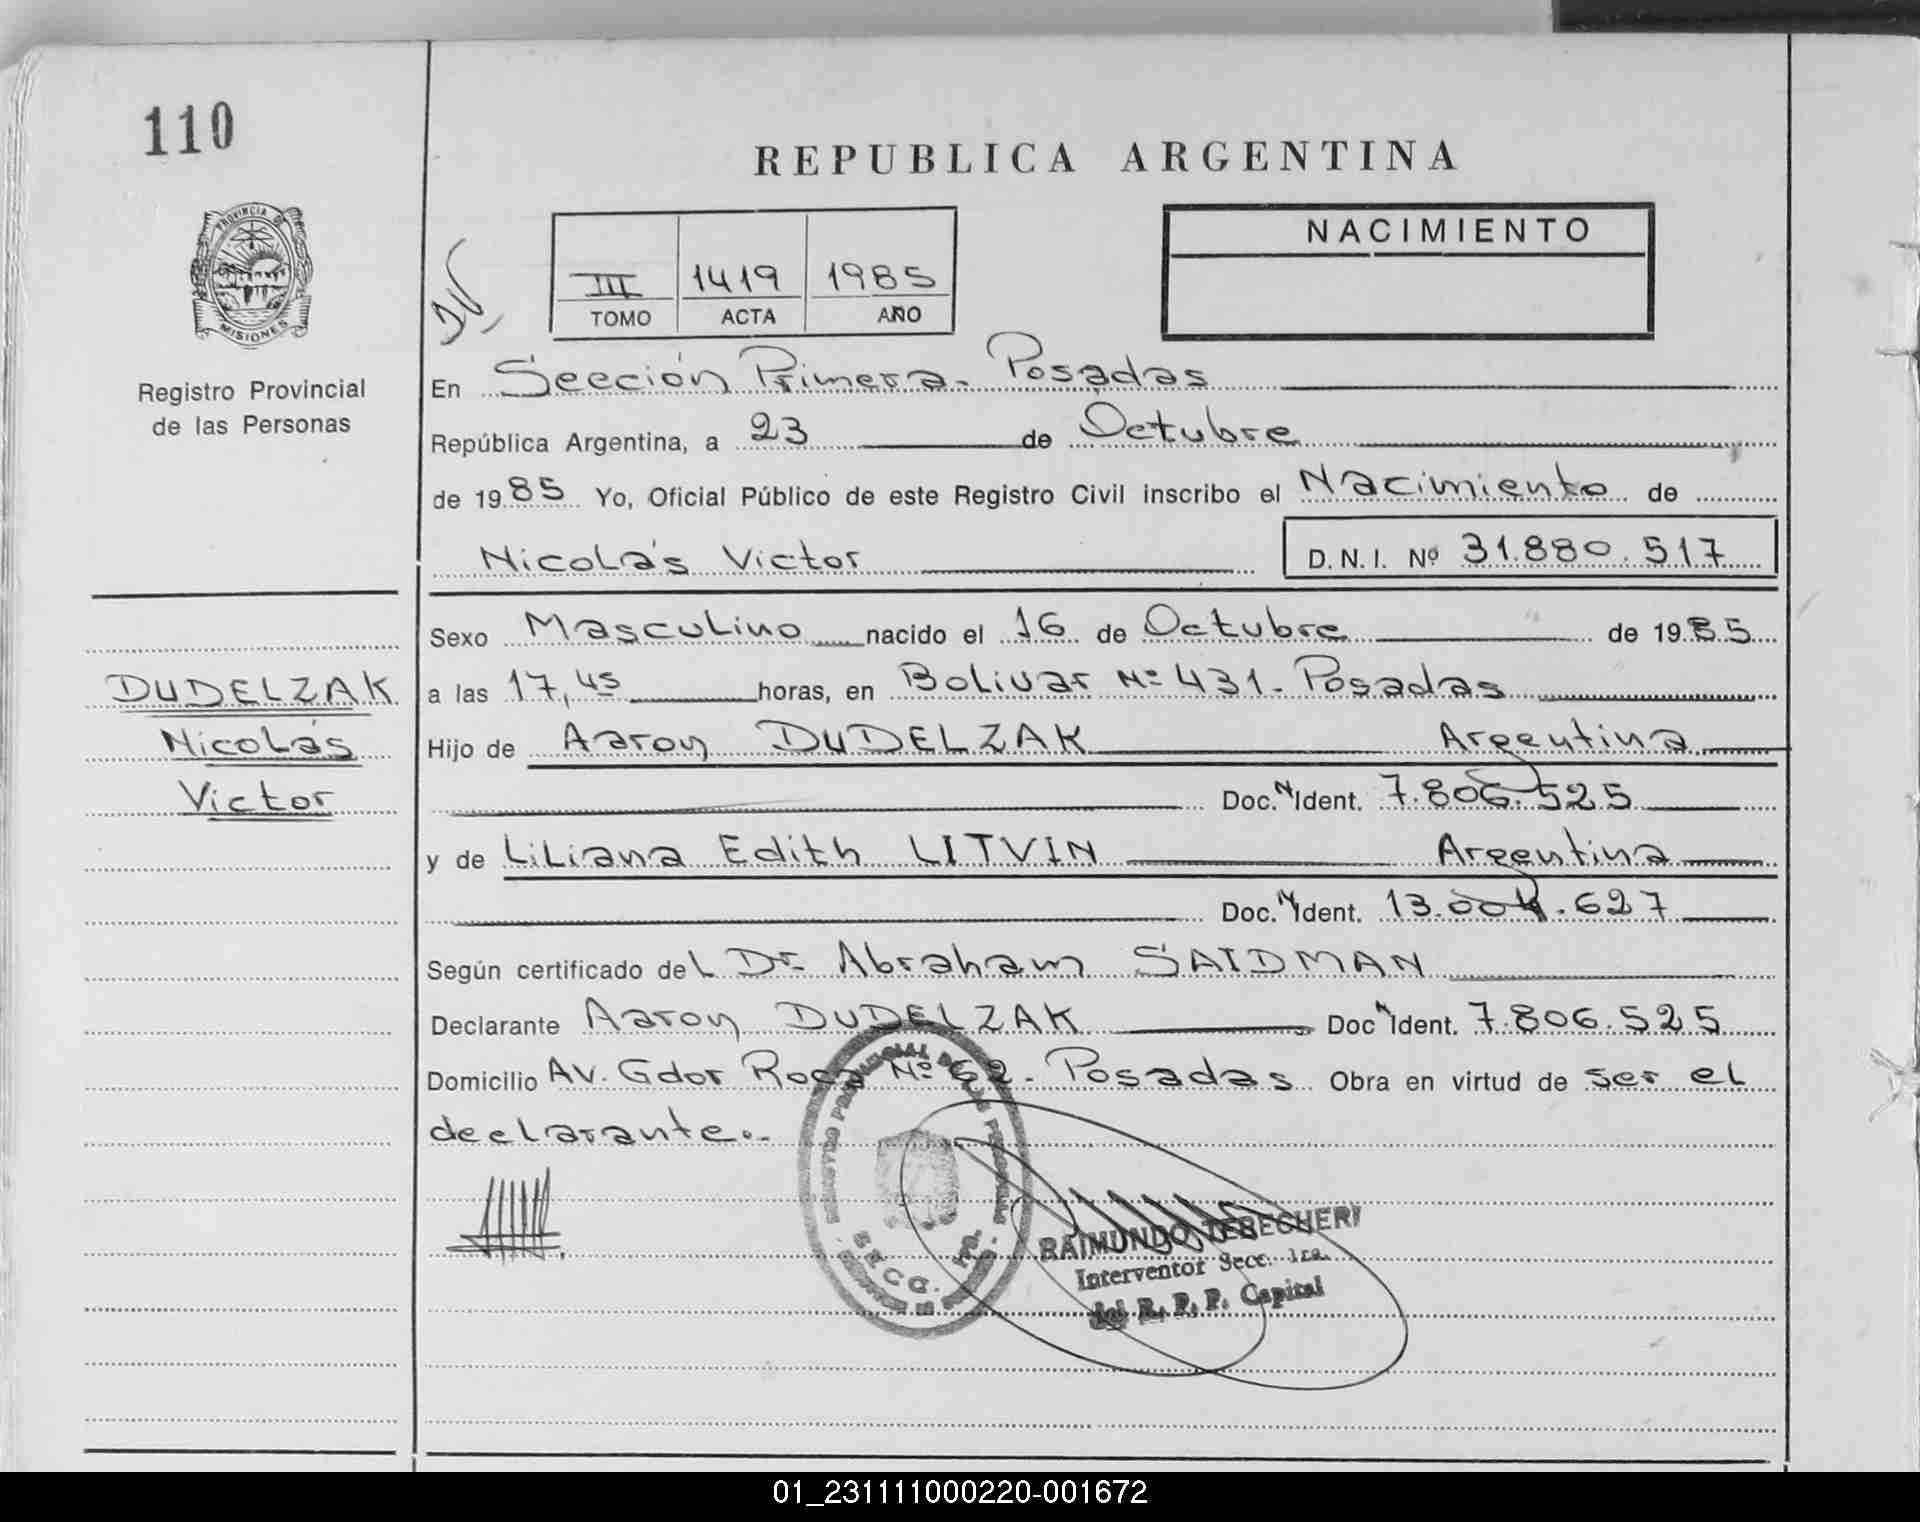 110
REPUBLICA ARGENTINA
PROVINCIA DE
MISIONES
Registro Provincial
de las Personas
III 1419 1985
TOMO ACTA AÑO
NACIMIENTO
En Sección Primera. Posadas
República Argentina, a 23 de Octubre
de 1985 Yo, Oficial Público de este Registro Civil inscribo el Nacimiento de
Nicolás Victor D. N. I. Nº 31.880.517
Sexo Masculino nacido el 16 de Octubre de 1985
DUDELZAK
Nicolás
Victor
a las 17,45 horas, en Bolivar Nº 431. Posadas
Hijo de Aaron DUDELZAK Argentina
Doc. N Ident. 7.806.525
y de Liliana Edith LITVIN Argentina
Doc. N Ident. 13.004.627
Según certificado del Dr. Abraham SAIDMAN
Declarante Aaron DUDELZAK Doc N Ident. 7.806.525
Domicilio Av. Gdor Roca Nº 62. Posadas Obra en virtud de ser el
declarante.
REGISTRO PROVINCIAL DE LAS PERSONAS
SECC. 1ra.
RAIMUNDO TEBECHERI
Interventor Secc. 1ra.
del R. P. P. Capital
01_231111000220-001672